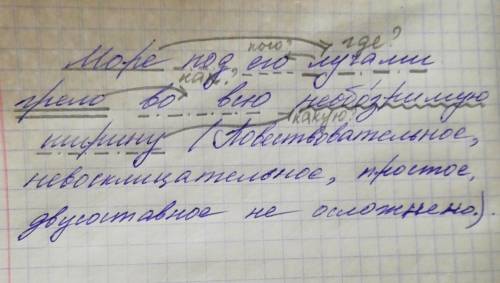 кого? где?
Море под его лучами
как?
грело во всю необозримую
какую?
ширину (Повествовательное,
невосклицательное, простое,
двусоставное не осложнено.).